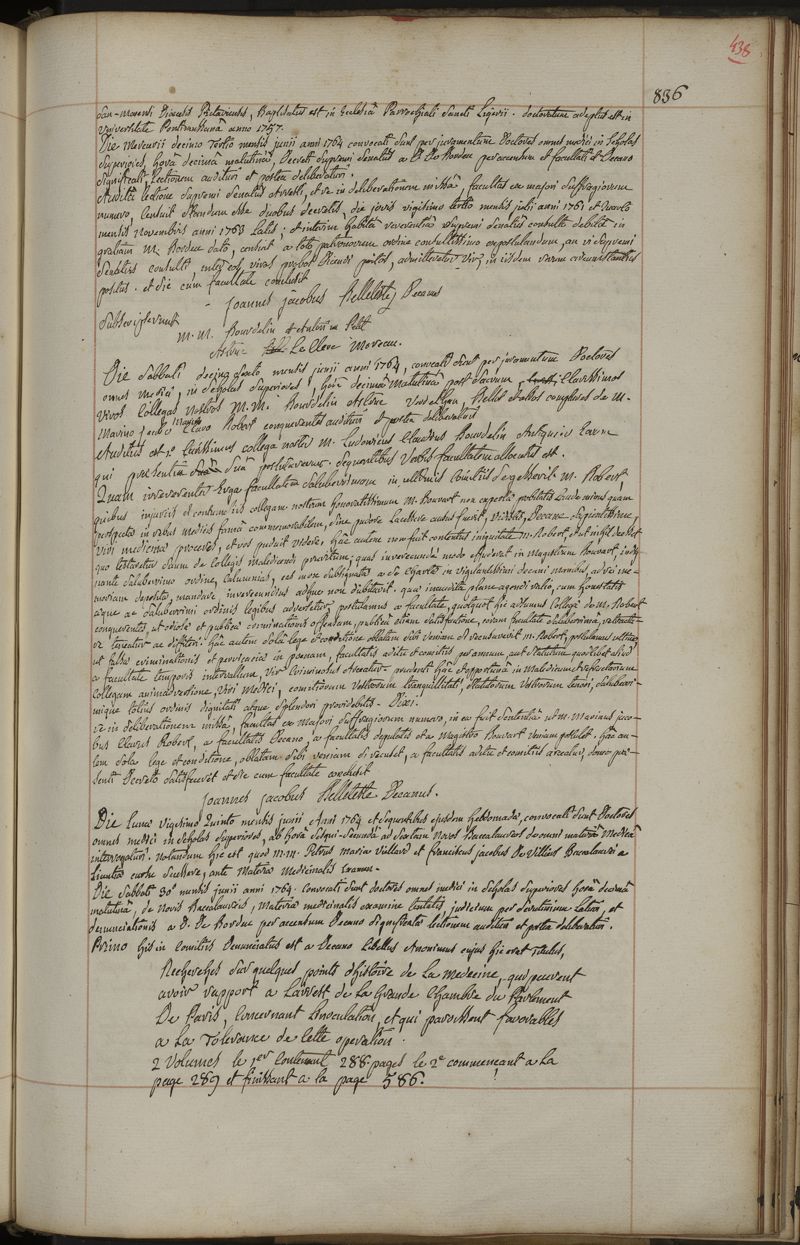 438
836
San-Maxenti Diocesis Pictaviensis, Baptisatus est in Ecclesiâ Parrochiali Sancti Ligerii. doctoratum adeptus est in
Universitate Pontimussana anno 1757.
Die Mercurii decimo tertio mensis junii anni 1764 convocati sunt per juramentum Doctores omnes medici in Scholas
Superiores, horâ decimâ matutinâ, Decreti Supremi Senatus a D. De Bordeu per accensum et facultati et Decano
significati, lectionem audituri et postea deliberaturi.
Auditâ lectione Supremi Senatus Arresti, et re in deliberationem missâ, facultas ex majori Suffragiorum
numero, censuit standum esse duobus decretis, die jovis vigesimo tertio mensis julii anni 1761 et quarto
mensis novembris anni 1763 latis; interim habitâ reverentiâ Supremi Senatus consulto debitâ in
gratiam M. Bordeu dato, censuit a toto patronorum ordine consultissimo expostulandum, an vi Supremi
Senatus consulti, inter eos viros probos Dicendi peritos, admitteretur Vir, in iisdem rerum circumstantiis
positus. et sic cum facultate conclusit
Joannes Jacobus Belleteste Decanus
Subscripserunt
M. M. Bourdelin et Antonius Petit
Le Clerc Moreau.
Die Sabbati decimo sexto mensis junii anni 1764, convocati sunt per juramentum Doctores
omnes medici, in Scholas Superiores, horâ decimâ matutinâ post Sacrum, Clarissimos
viros Collegas nostros M. M. Bourdelin Astruc Verdelhan, Bellet et alios complures de M.
Marino Jacobo Claro Robert conquerentes audituri et postea deliberaturi
Auditus est 1° Clarissimus collega noster M. Ludovicus Claudius Bourdelin Antiquior
qui praesentiâ Suâ postulaverunt. Sequentibus Verbis facultatem allocutus est.
Quam irreverenter Erga facultatem Saluberrimam in ultimis Comitiis Sese gesserit M. Robert,
quibus injuriis et contumeliis collegam nostrum honoratissimum M. Bouvart non expertâ probitatis laude minus quam
perspectâ in rebus medicis famâ commemorabilem, sine pudore lacessere ausus fuerit, vidisti, Decane Sapientissime,
viri medicinae proceres, et vos puduit videre. hâc autem non fuit contentus iniquitate M. Robert, et ut nihil deesset
quo testaretur Suum de Collegis maledicendi pruritum; quas inverecundâ modo effuderat in Magistrum Bouvart indig-
nante Saluberrimo ordine, calumnias, eas more Subsignatas a Se Chartis in vigilantissimi decani manibus, ad rei me-
moriam depositis, mandare inverecundus adhuc non dubitavit. quae inaudita plane agendi ratio, cum honestatis
aeque ac Saluberrimi ordinis legibus adversetur, postulamus a facultate, quotquot hic adsumus Collegae de M. Robert
conquerentes, ut odiosae et publicae criminationis offensam, publicâ etiam Satisfactione, coram facultate Saluberrimâ, retracta-
re teneatur ac diffiteri. Hâc autem Solâ lege et conditione oblatam Sibi veniam Si recusaverit M. Robert, postulamus ulterius
ut falsae criminationis et pervicaciae in poenam, facultatis aditu et comitiis per annum, aut Statutum quodlibet aliud
a facultate temporis intervallum, vir Criminosus Arceatur. prudenti hâc et opportunâ in Maledicum et refractarium
Collegam animadversione, Viri Medici, comitiorum Vestrorum tranquillitati, Statutorum Vestrorum tenori, Saluberri-
mique totius ordinis dignitati atque Splendori providebitis. Dixi.
re in deliberationem missâ, facultas ex Majori Suffragiorum numero, in ea fuit Sententiâ ut M. Marinus jaco-
bus Clarus Robert, a facultatis Decano, a facultatis deputatis et a Magistro Bouvart veniam postulet. hâc au-
tem Sola lege et conditione, oblatam Sibi veniam Si recuset, a facultatis aditu et comitiis arceatur, donec prae-
senti Decreto Satisfecerit et sic cum facultate conclusit
Joannes Jacobus Belleteste Decanus.
Die lunae vigesimo Quinto mensis junii Anni 1764 et Sequentibus ejusdem hebdomadae, convocati sunt Doctores
omnes medici in Scholas Superiores, ab horâ Sesqui-Secundâ ad Sextam Novos Baccalaureos de omni materiâ Medicâ
interrogaturi. Notandum hic est quod M. M. Petrus Maria Villars et franciscus Jacobus De Villiers Baccalaurei a
licentia ante Materiae Medicinalis Examen.
Die Sabbati 30â mensis junii anni 1764. convocati sunt doctores omnes medici in Scholas Superiores horâ decimâ
matutinâ, de Novis Baccalaureis, Materiae medicinalis examine tentatis judicium per Scrutinium laturi, et
denunciationis a D. De Bordeu per accensum Decano Significatae lectionem audituri et postea deliberaturi.
Primo his in Comitiis Denunciatus est a Decano libellus Anonimus cujus hic erat titulus,
Recherches sur quelques points d'histoire de la medecine, qui peuvent
avoir rapport a L'arrest de la Grande Chambre du Parlement
De Paris, Concernant L'inoculation, et qui paroissent favorables
a La Tolerance de cette operation.
2 Volumes le 1er contenant 288. pages le 2e commençant a la
page 289 et finissant a la page 586.